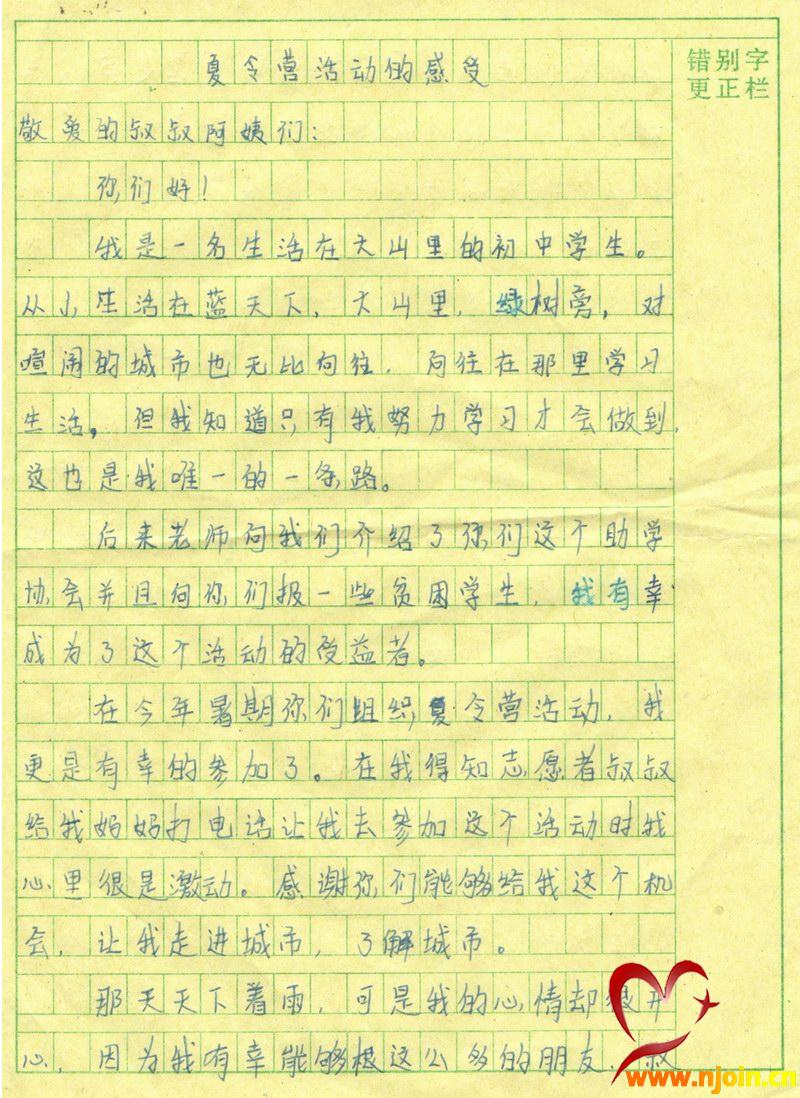 夏令营活动的感受
错别字
更正栏
敬爱的叔叔阿姨们：
你们好！
我是一名生活在大山里的初中学生。
从小生活在蓝天下，大山里，绿树旁，对
喧闹的城市也无比向往，向往在那里学习
生活，但我知道只有我努力学习才会做到，
这也是我唯一的一条路。
后来老师向我们介绍了你们这个助学
协会并且向你们报一些贫困学生，我有幸
成为了这个活动的受益者。
在今年暑期你们组织夏令营活动，我
更是有幸的参加了。在我得知志愿者叔叔
给我妈妈打电话让我去参加这个活动时我
心里很是激动。感谢你们能够给我这个机
会，让我走进城市，了解城市。
那天天下着雨，可是我的心情却很开
心，因为我有幸能够根这么多的朋友，叔
www.njoin.cn